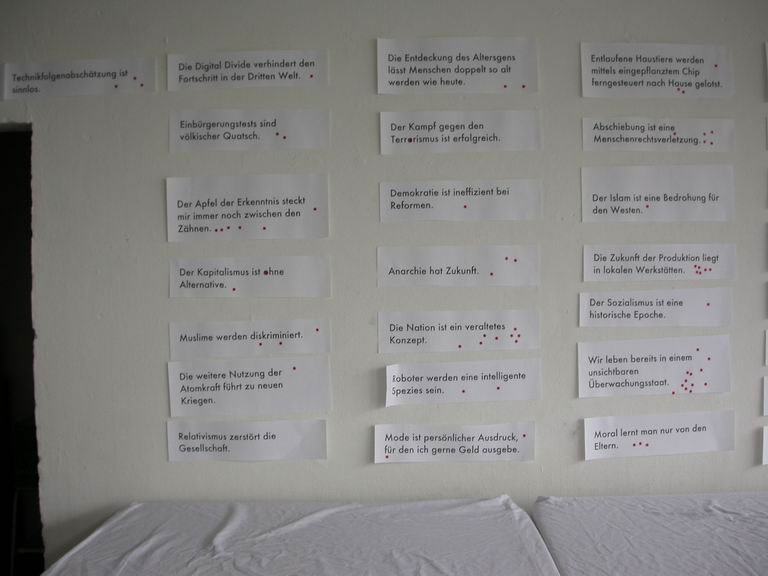 Technikfolgenabschätzung ist
sinnlos.
Die Digital Divide verhindert den
Fortschritt in der Dritten Welt.
Einbürgerungstests sind
völkischer Quatsch.
Der Apfel der Erkenntnis steckt
mir immer noch zwischen den
Zähnen.
Der Kapitalismus ist ohne
Alternative.
Muslime werden diskriminiert.
Die weitere Nutzung der
Atomkraft führt zu neuen
Kriegen.
Relativismus zerstört die
Gesellschaft.
Die Entdeckung des Altersgens
lässt Menschen doppelt so alt
werden wie heute.
Der Kampf gegen den
Terrorismus ist erfolgreich.
Demokratie ist ineffizient bei
Reformen.
Anarchie hat Zukunft.
Die Nation ist ein veraltetes
Konzept.
Roboter werden eine intelligente
Spezies sein.
Mode ist persönlicher Ausdruck,
für den ich gerne Geld ausgebe.
Entlaufene Haustiere werden
mittels eingepflanztem Chip
ferngesteuert nach Hause gelotst.
Abschiebung ist eine
Menschenrechtsverletzung.
Der Islam ist eine Bedrohung für
den Westen.
Die Zukunft der Produktion liegt
in lokalen Werkstätten.
Der Sozialismus ist eine
historische Epoche.
Wir leben bereits in einem
unsichtbaren
Überwachungsstaat.
Moral lernt man nur von den
Eltern.